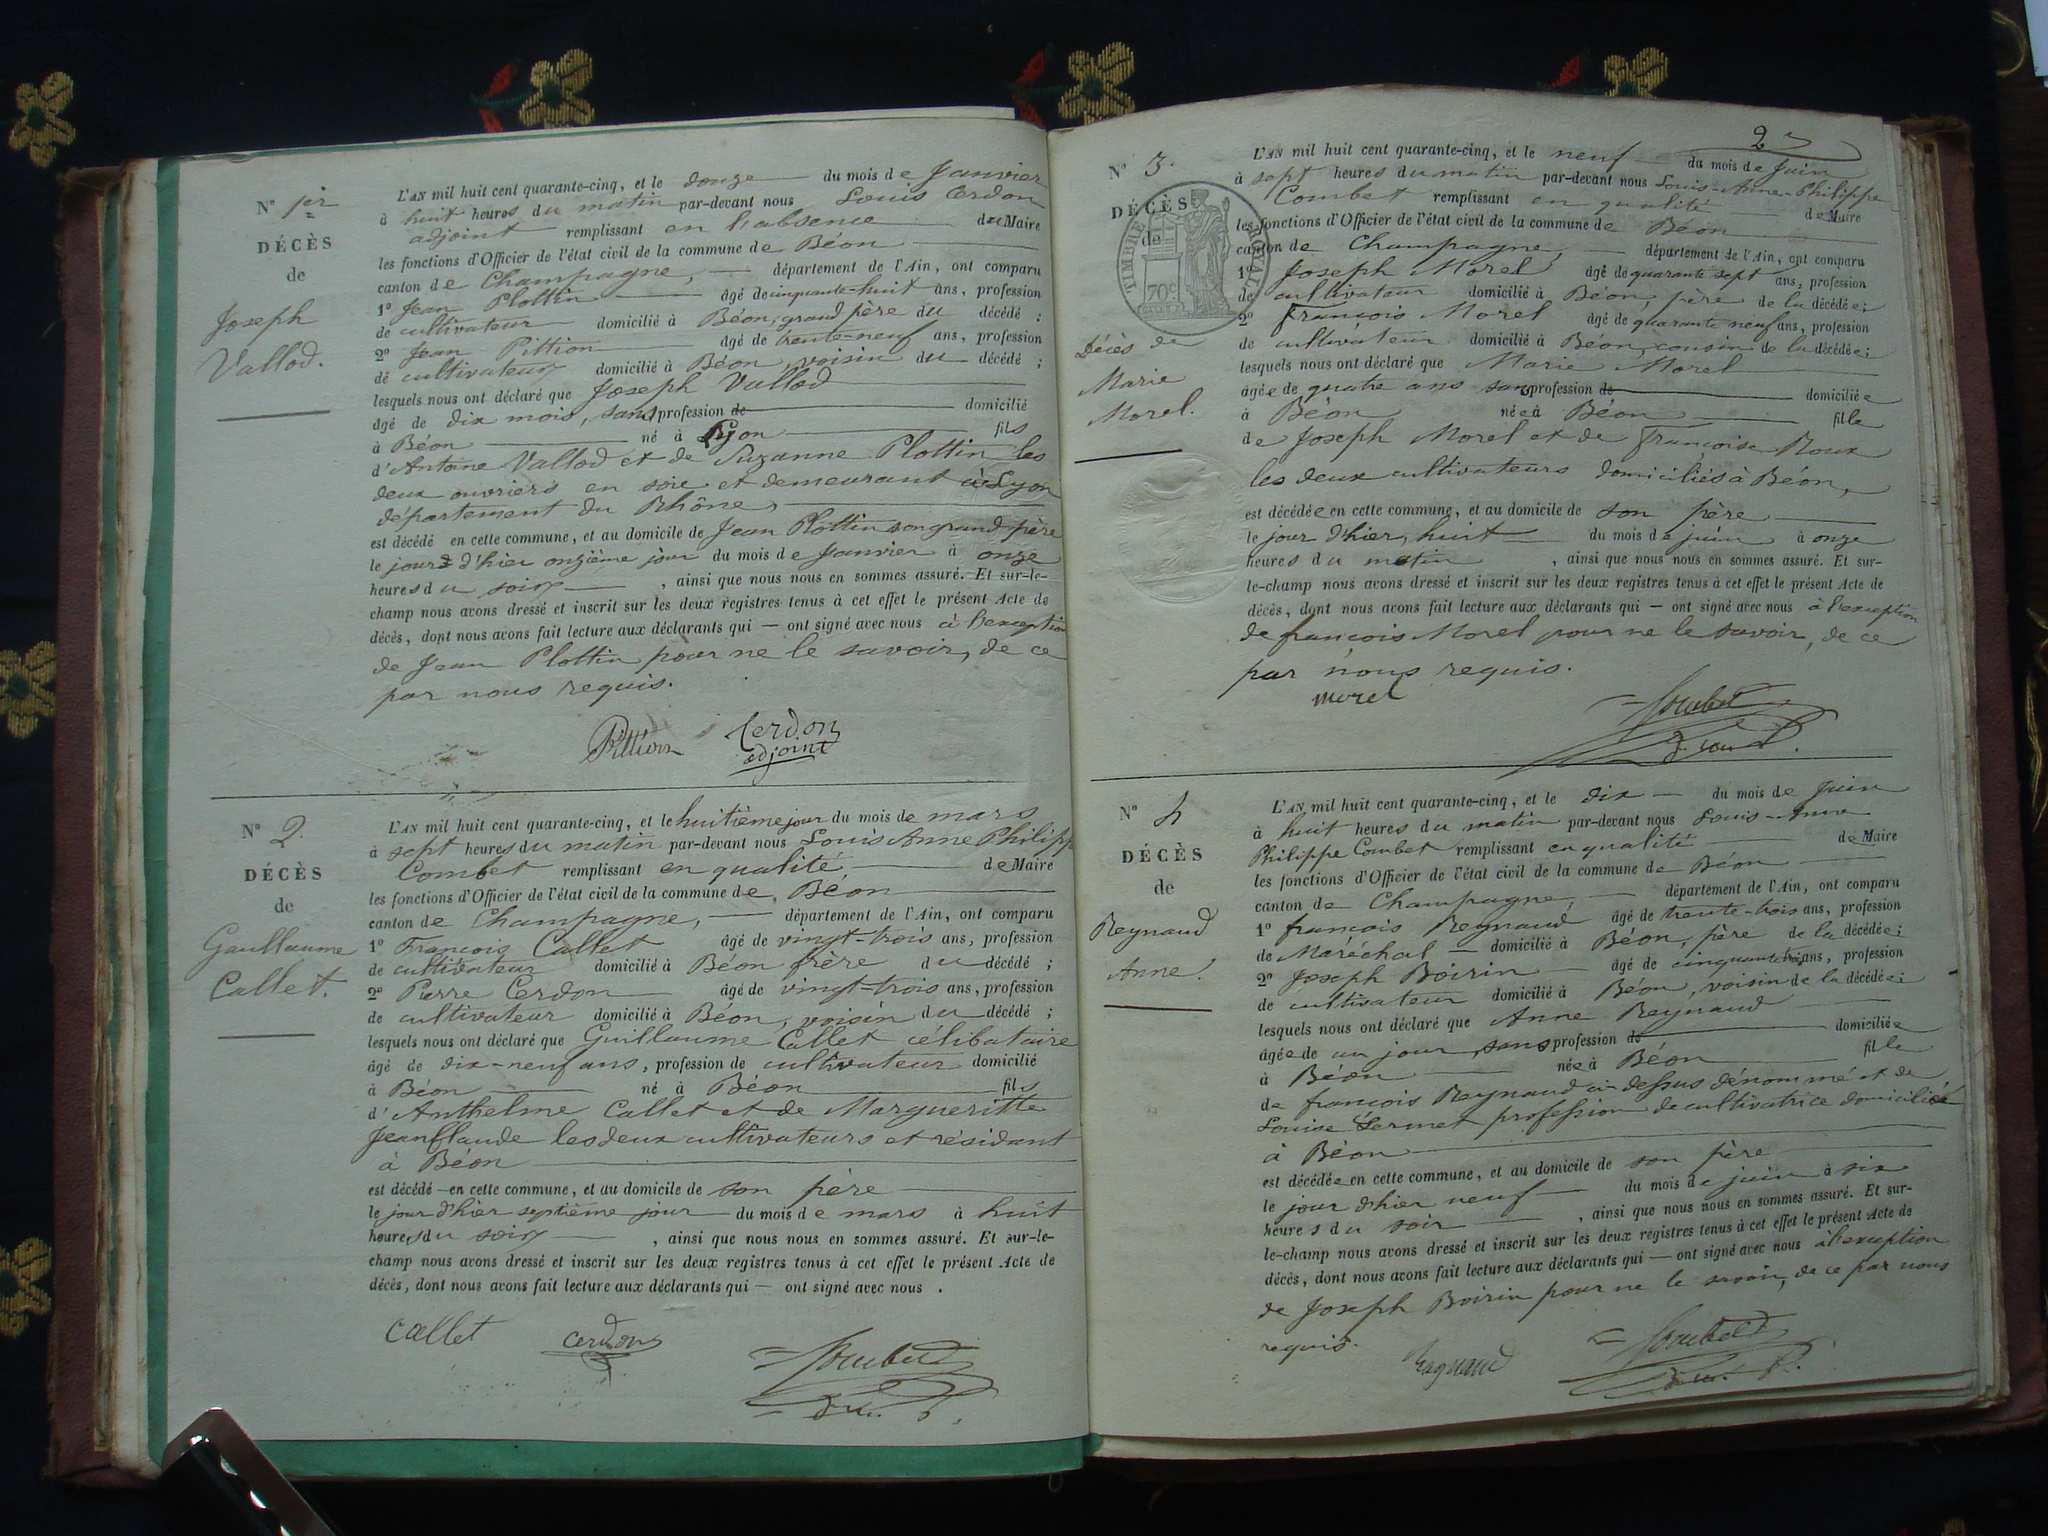 N° 1er
DÉCÈS
de
Joseph
Vallod.
L'AN mil huit cent quarante-cinq, et le douze du mois de Janvier
à huit heures du matin par-devant nous Louis Cerdon
adjoint remplissant en l'absence du Maire
les fonctions d'Officier de l'état civil de la commune de Béon
canton de Champagne, département de l'Ain, ont comparu
1° Jean Plottin âgé de cinquante-huit ans, profession
de cultivateur domicilié à Béon, grand père du décédé ;
2° Jean Pittion âgé de trente-neuf ans, profession
de cultivateur domicilié à Béon, voisin du décédé ;
lesquels nous ont déclaré que Joseph Vallod
âgé de dix mois, sans profession de domicilié
à Béon né à Lyon fils
d'Antoine Vallod et de Suzanne Plottin les
deux ouvriers en soie et demeurant à Lyon
département du Rhône,
est décédé en cette commune, et au domicile de Jean Plottin son grand-père
le jour d'hier onzième jour du mois de Janvier à onze
heures du soir , ainsi que nous nous en sommes assuré. Et sur-le-
champ nous avons dressé et inscrit sur les deux registres tenus à cet effet le présent Acte de
décès, dont nous avons fait lecture aux déclarants qui — ont signé avec nous à l'exception
de Jean Plottin pour ne le savoir, de ce
par nous requis.
Pittion Cerdon
adjoint
N° 2.
DÉCÈS
de
Gaullaume
Callet.
L'AN mil huit cent quarante-cinq, et le huitième jour du mois de mars
à sept heures du matin par-devant nous Louis Anne Philipp
Combet remplissant en qualité de Maire
les fonctions d'Officier de l'état civil de la commune de Béon
canton de Champagne, département de l'Ain, ont comparu
1° François Callet âgé de vingt-trois ans, profession
de cultivateur domicilié à Béon frère du décédé ;
2° Pierre Cerdon âgé de vingt-trois ans, profession
de cultivateur domicilié à Béon, voisin du décédé ;
lesquels nous ont déclaré que Guillaume Callet célibataire
âgé de dix-neuf ans, profession de cultivateur domicilié
à Béon né à Béon fils
d'Anthelme Callet et de Margueritte
JeanClaude les deux cultivateurs et résidant
à Béon
est décédé en cette commune, et au domicile de son père
le jour d'hier septième jour du mois de mars à huit
heures du soir , ainsi que nous nous en sommes assuré. Et sur-le-
champ nous avons dressé et inscrit sur les deux registres tenus à cet effet le présent Acte de
décès, dont nous avons fait lecture aux déclarants qui — ont signé avec nous .
Callet Cerdon Combet
2
N° 3.
DÉCÈS
de
TIMBRE ROYAL
70c
Décès de
Marie
Morel.
L'AN mil huit cent quarante-cinq, et le neuf du mois de Juin
à sept heures du matin par-devant nous Louis-Anne-Philippe
Combet remplissant en qualité de Maire
les fonctions d'Officier de l'état civil de la commune de Béon
canton de Champagne, département de l'Ain, ont comparu
1° Joseph Morel âgé de quarante sept ans, profession
de cultivateur domicilié à Béon, père de la décédée ;
2° François Morel âgé de quarante neuf ans, profession
de cultivateur domicilié à Béon, cousin de la décédée ;
lesquels nous ont déclaré que Marie Morel
âgée de quatre ans sans profession de domiciliée
à Béon née à Béon fille
de Joseph Morel et de Françoise Roux
les deux cultivateurs domiciliés à Béon,
est décédée en cette commune, et au domicile de son père
le jour d'hier, huit du mois de juin à onze
heures du matin , ainsi que nous nous en sommes assuré. Et sur-
le-champ nous avons dressé et inscrit sur les deux registres tenus à cet effet le présent Acte de
décès, dont nous avons fait lecture aux déclarants qui — ont signé avec nous à l'exception
de françois Morel pour ne le savoir, de ce
par nous requis.
morel Combet
N° 4
DÉCÈS
de
Reynaud
Anne.
L'AN mil huit cent quarante-cinq, et le dix du mois de Juin
à huit heures du matin par-devant nous Louis-Anne
Philippe Combet remplissant en qualité de Maire
les fonctions d'Officier de l'état civil de la commune de Béon
canton de Champagne, département de l'Ain, ont comparu
1° françois Reynaud âgé de trente-trois ans, profession
de Maréchal domicilié à Béon, père de la décédée ;
2° Joseph Boirin âgé de ans, profession
de cultivateur domicilié à Béon, voisin de la décédée ;
lesquels nous ont déclaré que Anne Reynaud
âgée de un jour, sans profession de domiciliée
à Béon née à Béon fille
de françois Reynaud ci-dessus dénommé et de
Louise Sermet profession de cultivatrice domiciliée
à Béon
est décédée en cette commune, et au domicile de son père
le jour d'hier neuf du mois de juin à six
heures du soir , ainsi que nous nous en sommes assuré. Et sur-
le-champ nous avons dressé et inscrit sur les deux registres tenus à cet effet le présent Acte de
décès, dont nous avons fait lecture aux déclarants qui — ont signé avec nous à l'exception
de Joseph Boirin pour ne le savoir, de ce par nous
requis.
Combet